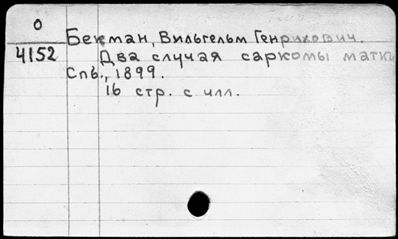 О
Бекман, Вильгельм Генрихович.
4152
Два случая саркомы матки
Спб., 1899.
16 стр. с илл.